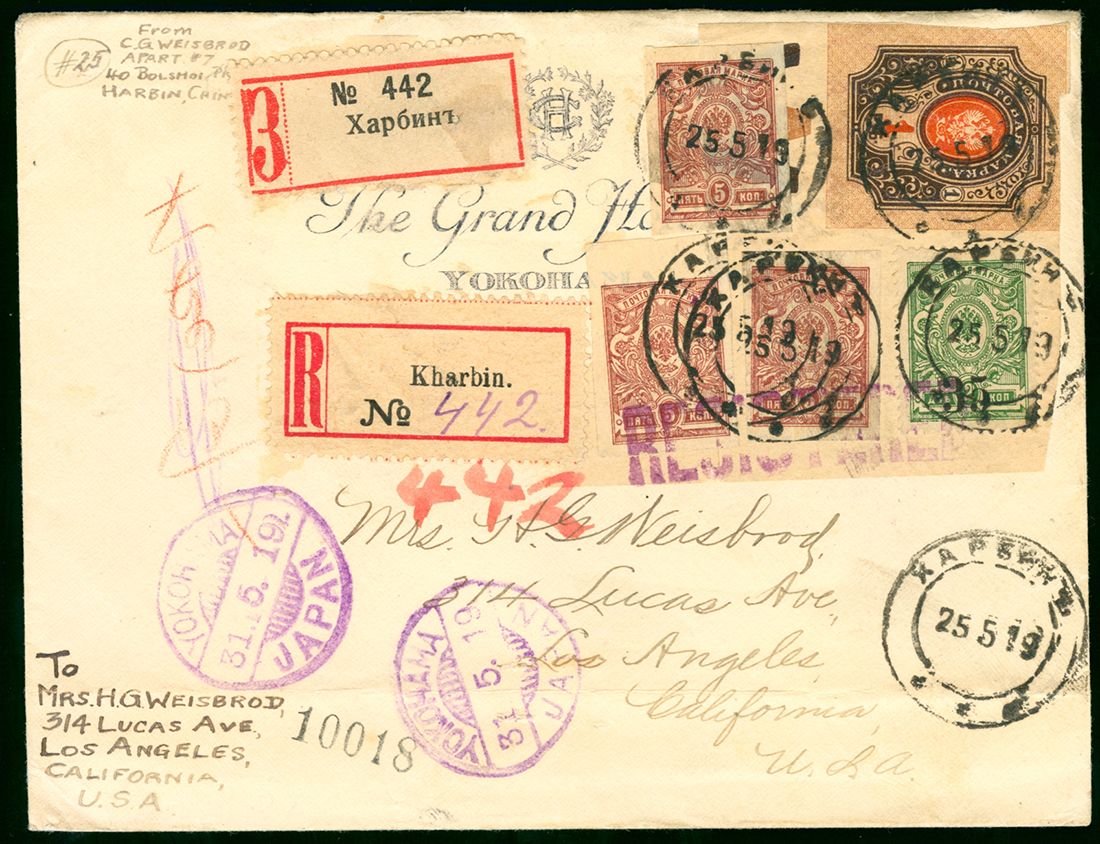 #25
From
C.G. WEISBROD
APART #7
40 BOLSHOI, PK
HARBIN, CHIN
З
№ 442
Харбинъ
The Grand Ho
YOKOHA
R
Kharbin.
№ 442.
442
ПОЧТОВАЯ МАРКА
5
ПЯТЬ КОП.
ХАРБИНЪ
25 5 19
ПОЧТОВАЯ МАРКА
1
ХАРБИНЪ
25 5 19
ПОЧТОВАЯ МАРКА
5
ПЯТЬ КОП.
ХАРБИНЪ
25 5 19
ПОЧТОВАЯ МАРКА
5
ПЯТЬ КОП.
ХАРБИНЪ
25 5 19
ПОЧТОВАЯ МАРКА
35
КОП.
ХАРБИНЪ
25 5 19
REGISTERED
Mrs. H. G. Weisbrod,
314 Lucas Ave,
Los Angeles,
California,
U.S.A.
YOKOHAMA
31. 5. 19.
JAPAN
YOKOHAMA
31. 5. 19
JAPAN
ХАРБИНЪ
25 5 19
To
MRS. H.G. WEISBROD,
314 LUCAS AVE,
LOS ANGELES,
CALIFORNIA,
U.S.A
10018